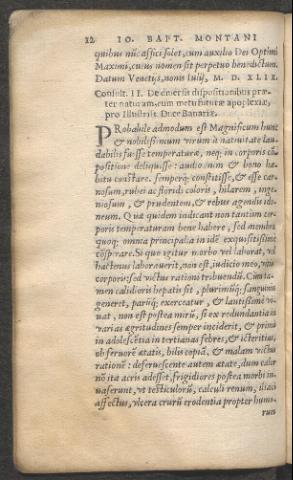 12 IO. BAPT. MONTANI
quibus nūc affici solet, cum auxilio Dei Optimi
Maximi, cuius nomen sit perpetuo benedictum.
Datum Venetijs, nonis Iulij, M. D. XLIX.
Consult. II. De diuersis dispositionibus præ-
ter naturam, cum metu futuræ apoplexiæ,
pro Illustriss. Duce Bauariæ.
PRobabile admodum est Magnificum hunc
& nobilissimum virum à natiuitate lau-
dabilis fuisse temperaturæ, neq; in corporis cō
positione deliquisse: audio enim & bono ha-
bitu constare. semperq; constitisse, & esse car-
nosum, rubei ac floridi coloris, hilarem, inge-
niosum, & prudentem, & rebus agendis ido-
neum. Quæ quidem indicant non tantùm cor-
poris temperaturam bene habere, sed membra
quoq; omnia principalia in idē exquisitissimè
cōspirare. Si quo igitur morbo vel laborat, vel
hactenus laborauerit, non est, iudicio meo, vitio
corporis: sed victus rationi tribuendū. Cum ta-
men calidioris hepatis sit, plurimūq; sanguinis
generet, parūq; exerceatur, & lautissimè vi-
uat, non est postea mirū, si ex redundantia in
varias ægritudines semper inciderit, & primò
in adolescētia in tertianas febres, & icteritias,
ob feruorē ætatis, bilis copiā, & malam victus
rationē: deferuescente autem ætate, dum calor
nō ita acris adesset, frigidiores postea morbi in-
uaserunt, vt testiculorū, calculi renum, iliaci
affectus, vlcera crurū erodentia propter humo-
rum